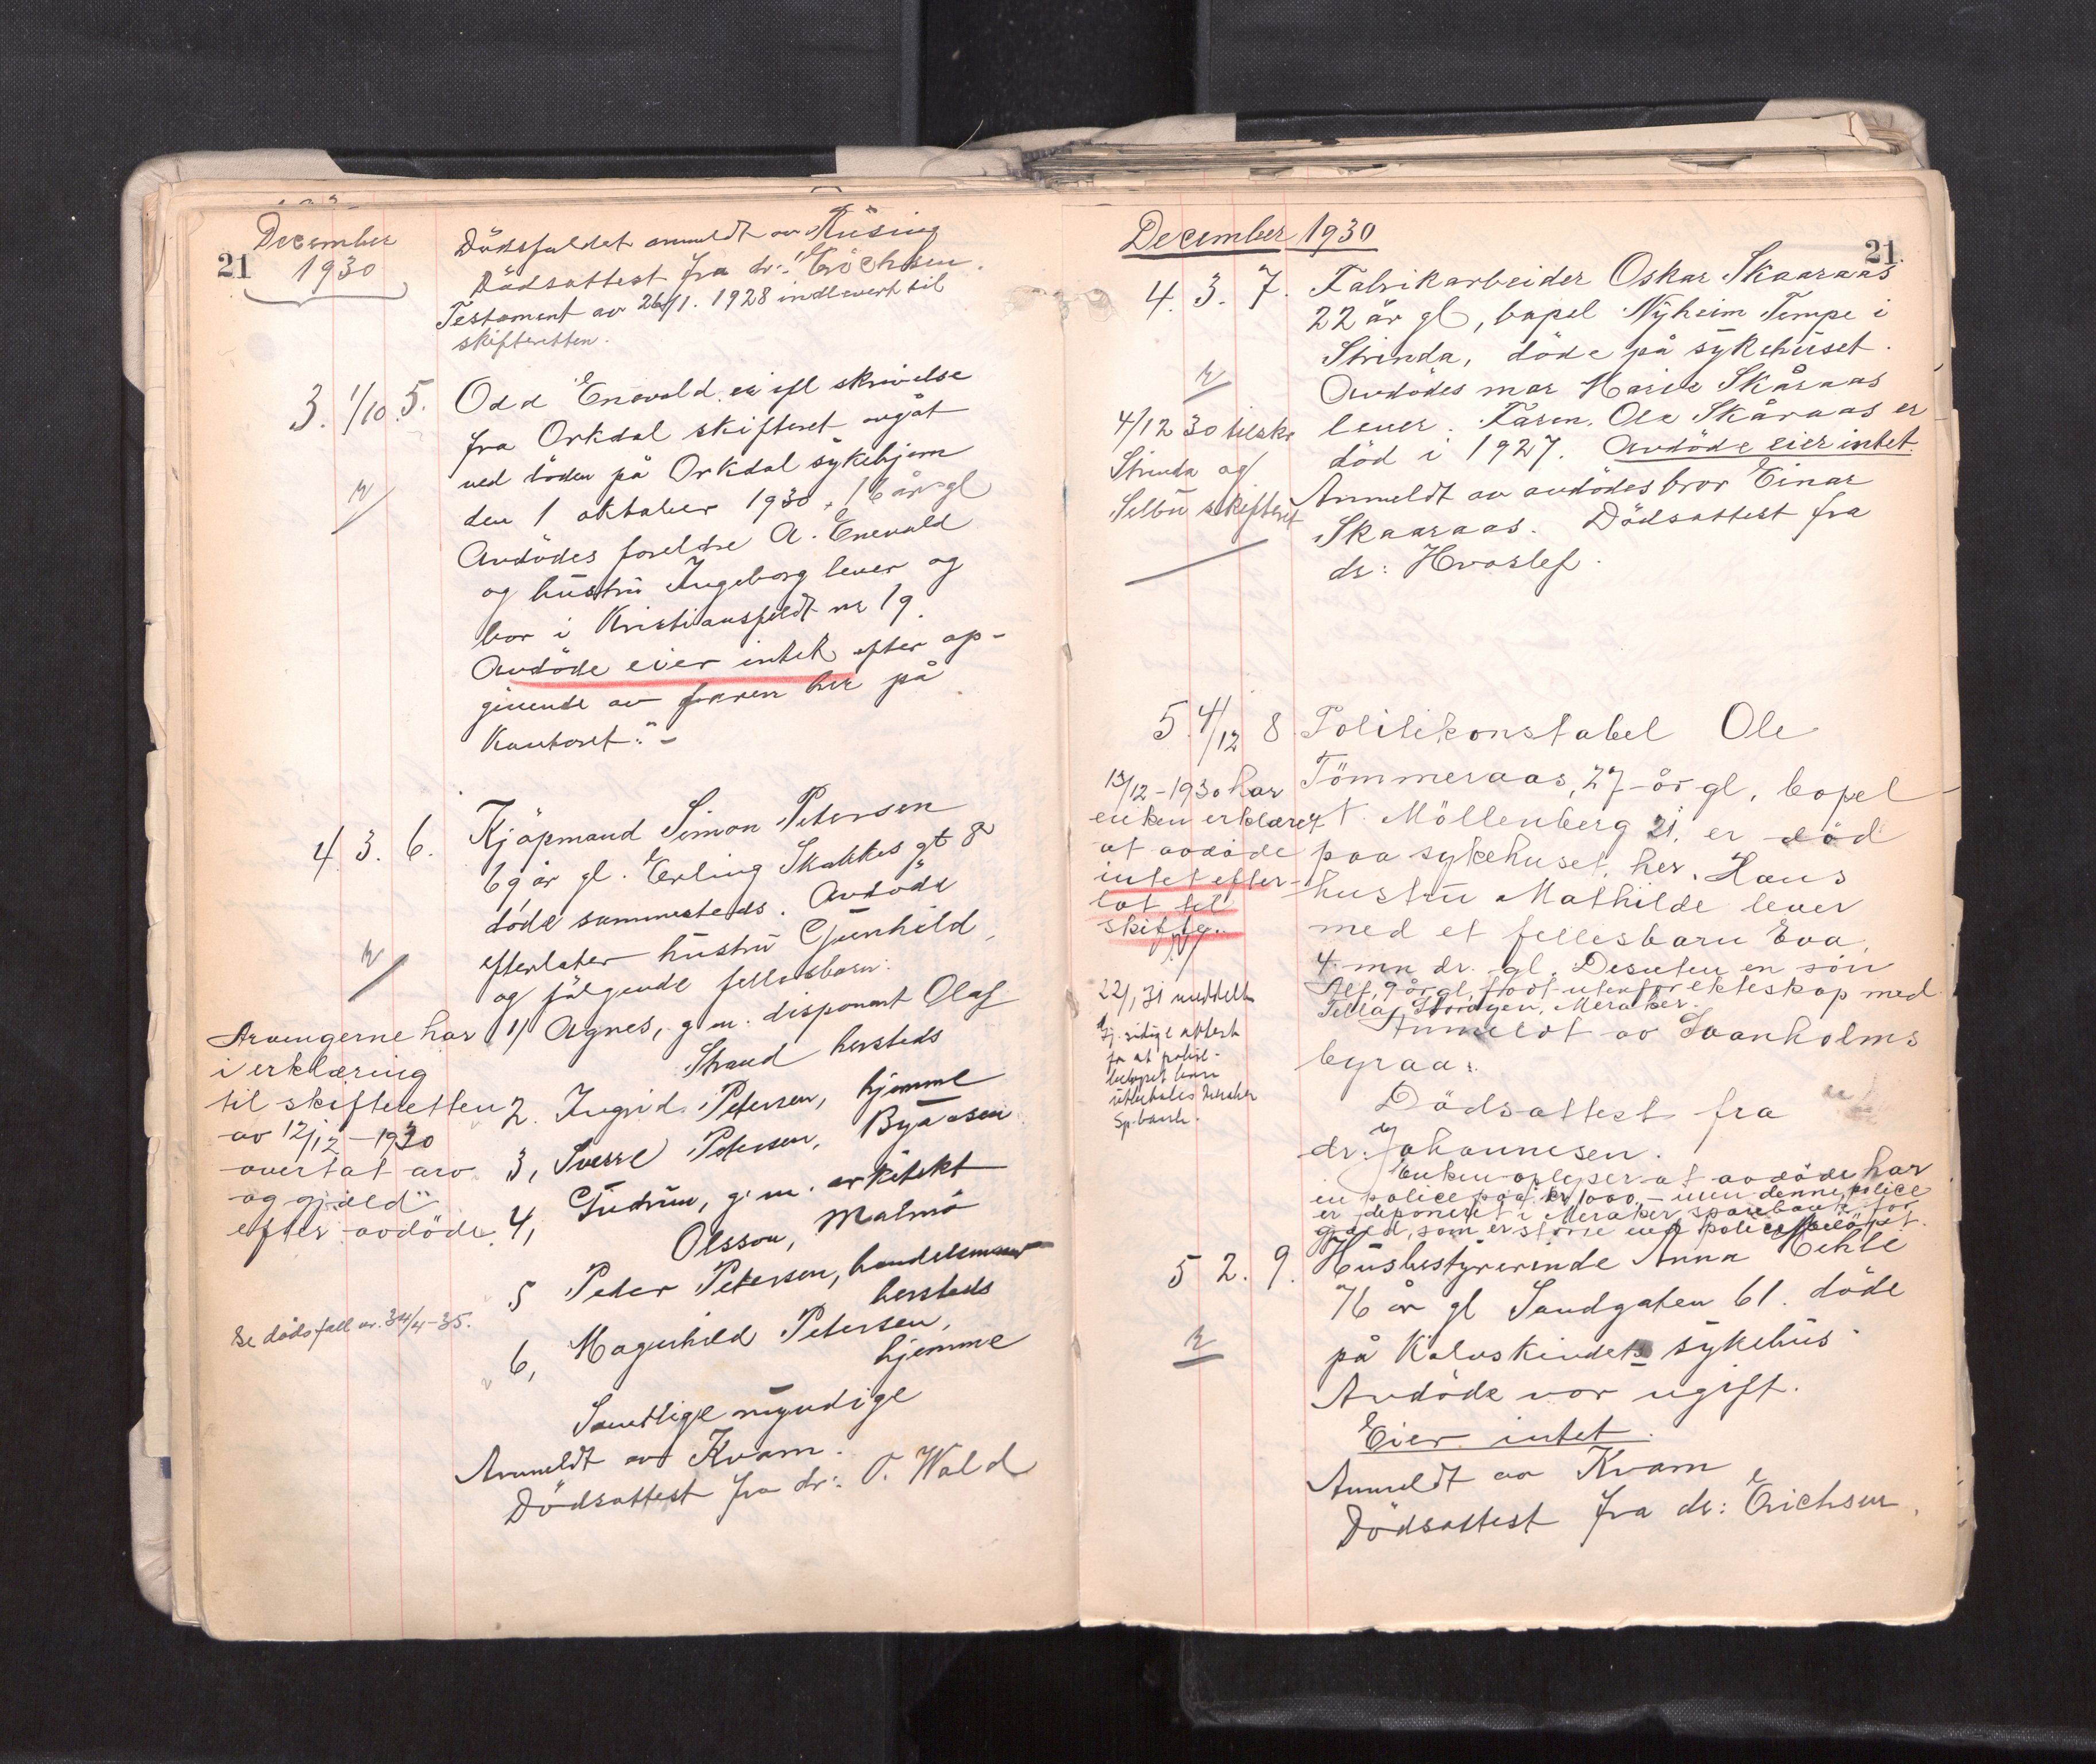 December
21 1930
Dödsfaldet anmeldt av Rüsing
Dödsattest fra dr: Erichsen.
Testament av 26/1. 1928 indlevert til
skifteretten.
3. 1/10 5. Odd Enevald er ifl skrivelse
fra Orkdal skifteret avgåt
ved döden på Orkdal sykehjem
den 1 oktober 1930, 16 år gl
Avdödes foreldre A. Enevald
og hustru Ingeborg lever og
bor i Kristiansfeldt nr 19.
Avdöde eier intet efter op-
givende av faren her på
Kontoret.
4. 3. 6. Kjöpmand Simon Petersen
69 år gl. Erling Skakkes gt 8
döde sammesteds. Avdöde
efterlater hustru Gunhild,
og fölgende fellesbarn:
1) Agnes, g.m. disponent Olaf
Strand hersteds
2. Ingrid Petersen, hjemme
3, Sverre Petersen, Byåsen
4, Gudrun, g.m. arkitekt
Olsson, Malmö
5 Peder Petersen, handelsmann
hersteds
6, Magnhild Petersen,
hjemme
Samtlige myndige
Anmeldt av Kvam.
Dödsattest fra dr: O. Wald
Arvingerne har
i erklæring
til skifteretten
av 12/12 - 1930
overtat arv
og gjæld
efter avdöde.
Se dödsfall nr. 34/4-35.
December 1930
21
4. 3. 7. Fabrikarbeider Oskar Skaaraas
22 år gl, bopel Nyheim Tempe i
Strinda, döde på sykehuset.
Avdödes mor Marie Skåraas
lever. Faren Ole Skåraas er
död i 1927. Avdöde eier intet.
Anmeldt av avdödes bror Einar
Skaaraas. Dödsattest fra
dr: Hvoslef.
4/12 30 tilskr
Strinda og
Selbu skifteret
5. 4/12 8. Politikonstabel Ole
Tömmeraas, 27 år gl, bopel
N. Möllenberg 21, er död
paa sykehuset, her. Hans
hustru Mathilde lever
med et fellesbarn Eva,
4 mndr. gl. Desuten en sön
Alf, 9 år gl, født utenfor ekteskap med
Meraker.
Anmeldt av Svanholms
byraa.
Dödsattest fra
dr. Johannesen.
Enken oplyser at avdöde har
en police paa kr 1000,- men denne police
er deponeret i Meraker sparebank for
gjæld, som er större end policebelöpet.
13/12-1930 har
enken erklæret
at avdöde
intet efter-
lot til
skifte.
22/1 31 meddelt
attest
for at
Meraker
Sp.bank.
5 2. 9. Husbestyrerinde Anna Mehle
76 år gl Sandgaten 61. döde
på Kalvskindets sykehus
Avdöde var ugift.
Eier intet.
Anmeldt av Kvam
Dödsattest fra dr: Erichsen.